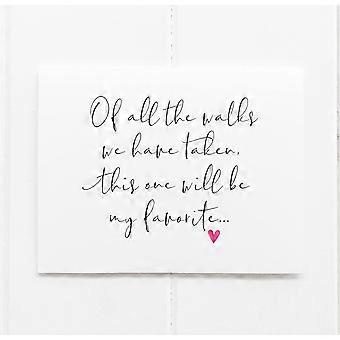 Of all the walks
we have taken,
this one will be
my favorite...